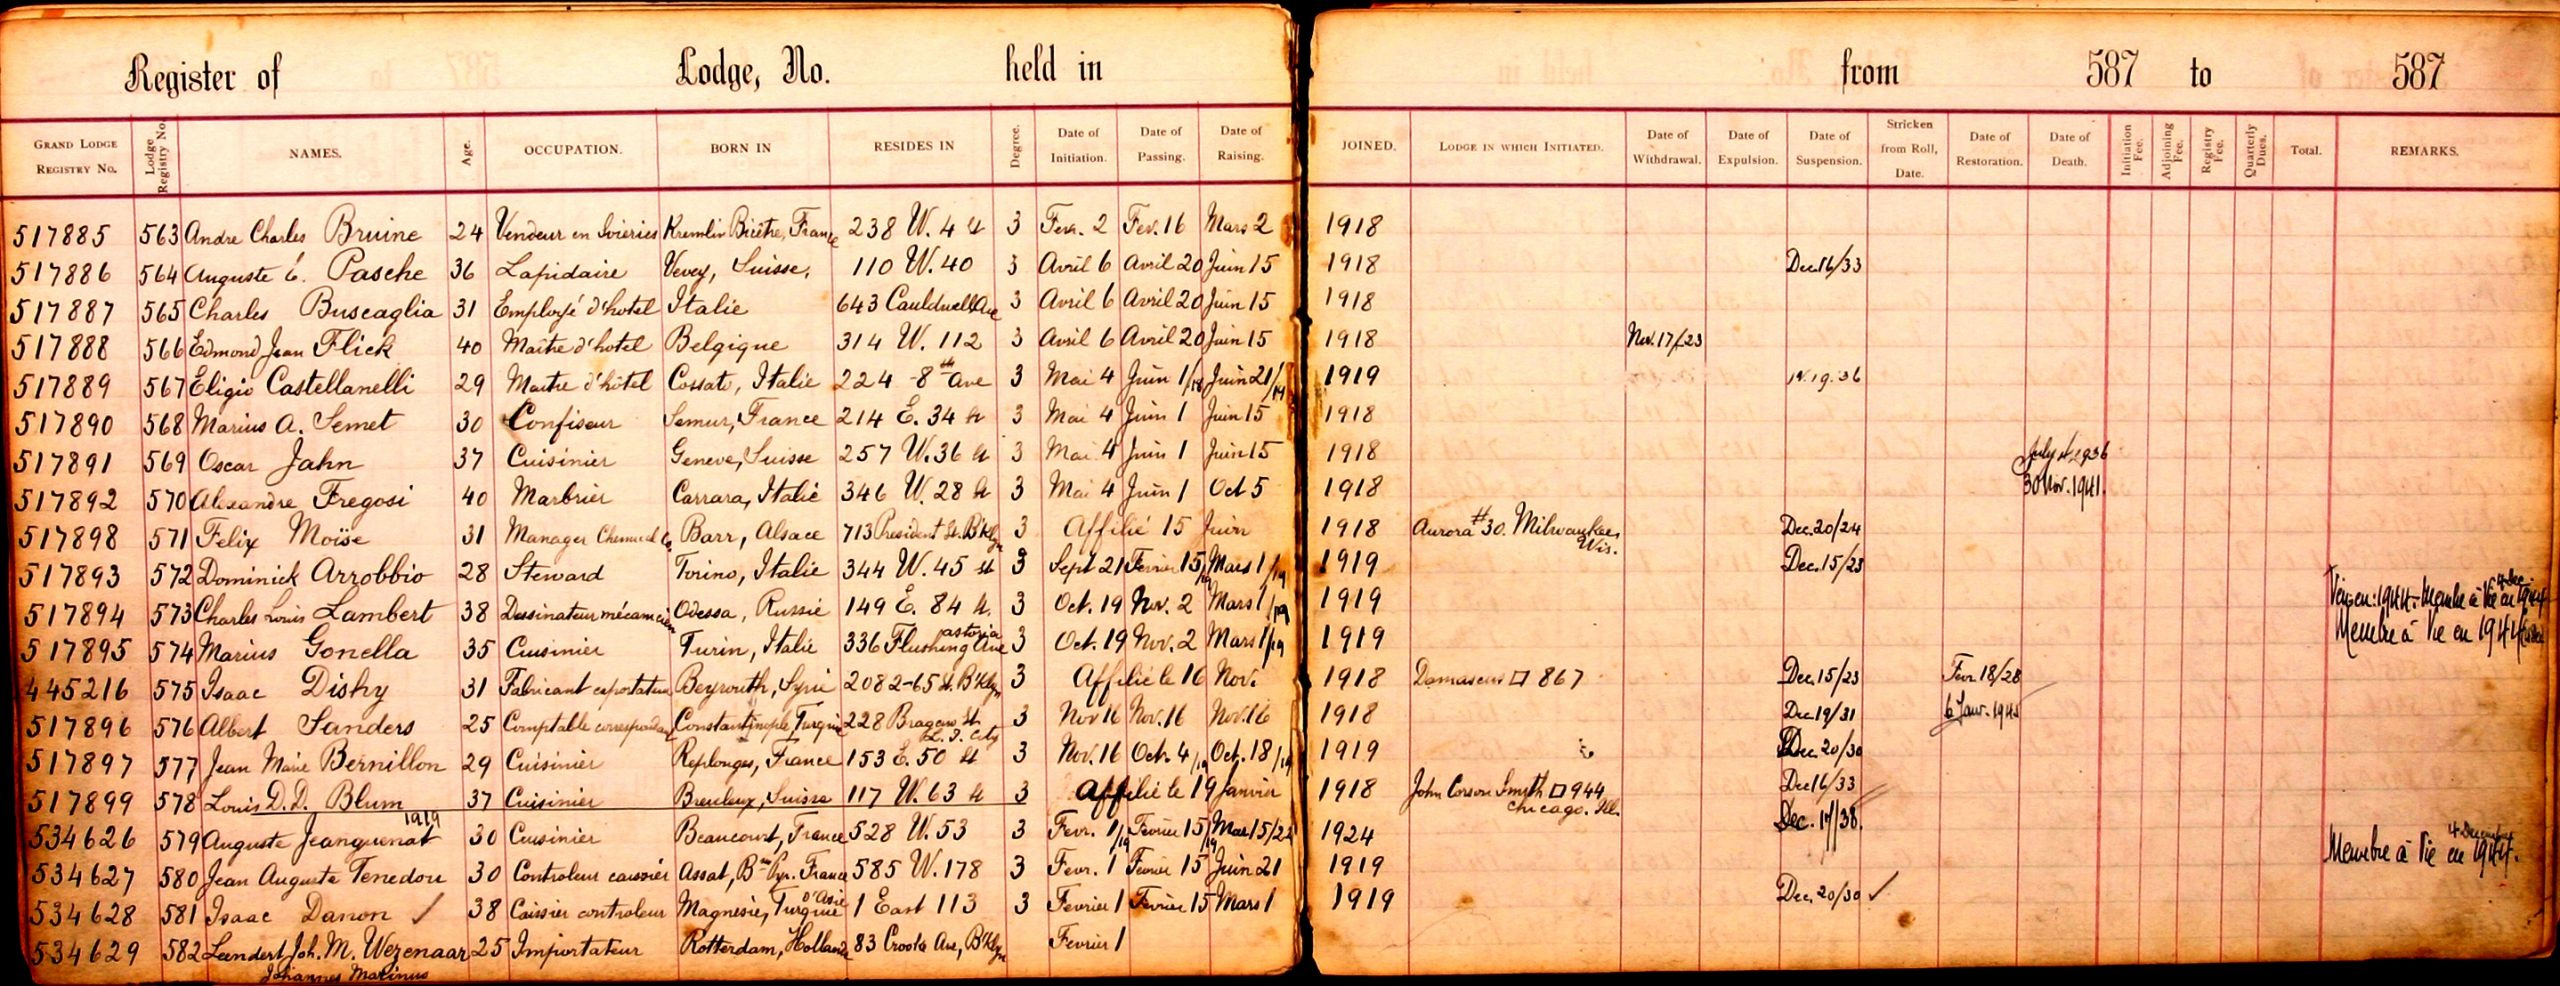 Register of Lodge, No. held in from 587 to 587
GRAND LODGE REGISTRY No. Lodge Registry No. NAMES. Age. OCCUPATION. BORN IN RESIDES IN Degree. Date of Initiation. Date of Passing. Date of Raising. JOINED. LODGE IN WHICH INITIATED. Date of Withdrawal. Date of Expulsion. Date of Suspension. Stricken from Roll, Date. Date of Restoration. Date of Death. Initiation Fee. Adjoining Fee. Registry Fee. Quarterly Dues. Total. REMARKS.
517885 563 Andre Charles Bruine 24 Vendeur en Soieries Kremlin Bicêtre, France 238 W. 4 st 3 Fevr. 2 Fev. 16 Mars 2 1918
517886 564 Auguste E. Pasche 36 Lapidaire Vevey, Suisse, 110 W. 40 3 Avril 6 Avril 20 Juin 15 1918 Dec 16/33
517887 565 Charles Buscaglia 31 Employé d'hotel Italie 643 Cauldwell Ave 3 Avril 6 Avril 20 Juin 15 1918
517888 566 Edmond Jean Flick 40 Maitre d'hotel Belgique 314 W. 112 3 Avril 6 Avril 20 Juin 15 1918 Nov. 17/23
517889 567 Eligio Castellanelli 29 Maitre d'hôtel Cossato, Italie 224 - 8th Ave 3 Mai 4 Juin 1/18 Juin 21/19 1919 19. 36
517890 568 Marius A. Semet 30 Confiseur Semur, France 214 E. 34 st 3 Mai 4 Juin 1 Juin 15 1918
517891 569 Oscar Jahn 37 Cuisinier Geneve, Suisse 257 W. 36 st 3 Mai 4 Juin 1 Juin 15 1918 July 1936
517892 570 Alexandre Fregosi 40 Marbrier Carrara, Italie 346 W. 28 st 3 Mai 4 Juin 1 Oct 5 1918 30 Nov. 1941.
517898 571 Felix Moïse 31 Manager Chemical Co Barr, Alsace 713 President St. B'klyn 3 Affilié 15 Juin 1918 Aurora #30. Milwaukee, Wis. Dec. 20/24
517893 572 Dominick Arrobbio 28 Steward Torino, Italie 344 W. 45 st 3 Sept 21 Fevrier 15/19 Mars 1/19 1919 Dec. 15/23
517894 573 Charles Louis Lambert 38 Dessinateur mécanicien Odessa, Russie 149 E. 84 st. 3 Oct. 19 Nov. 2 Mars 1/19 1919 1944. Membre à Vie en 1944
517895 574 Marius Gonella 35 Cuisinier Turin, Italie 336 Flushing Ave Astoria 3 Oct. 19 Nov. 2 Mars 1/19 1919 Membre à Vie en 1944
445216 575 Isaac Dishy 31 Fabricant exportateur Beyrouth, Syrie 2082-65 st. B'klyn 3 Affilié le 16 Nov. 1918 Damascus 867 Dec. 15/23 Fevr 18/28
517896 576 Albert Sanders 25 Comptable correspondant Constantinople, Turquie 228 Bragaw St. L. I. City 3 Nov 16 Nov. 16 Nov. 16 1918 Dec 19/31 6 Janv. 1945
517897 577 Jean Marie Bernillon 29 Cuisinier Replonges, France 153 E. 50 st 3 Nov. 16 Oct. 4/19 Oct. 18/19 1919 Dec. 20/30
517899 578 Louis D. D. Blum 37 Cuisinier Breuleux, Suisse 117 W. 63 st 3 Affilié le 19 Janvier 1918 John Corson Smyth 944 Chicago. Ill. Dec 16/33
534626 579 Auguste Jeanguenat 1919 30 Cuisinier Beaucourt, France 528 W. 53 3 Fevr. 1/19 Fevrier 15/19 Mar 15/24 1924 Dec. 17/38.
534627 580 Jean Auguste Tenedou 30 Controleur caissier Assat, Bses Pyr. France 585 W. 178 3 Fevr. 1 Fevrier 15 Juin 21 1919 Membre à Vie en 1944. 4 Decembre
534628 581 Isaac Danon ✓ 38 Caissier controleur Magnesie, Turquie d'Asie 1 East 113 3 Fevrier 1 Fevrier 15 Mars 1 1919 Dec. 20/30 ✓
534629 582 Leendert Joh. M. Wezenaar 25 Importateur Rotterdam, Hollande 83 Crooke Ave, B'klyn Fevrier 1
Johannes Marinus